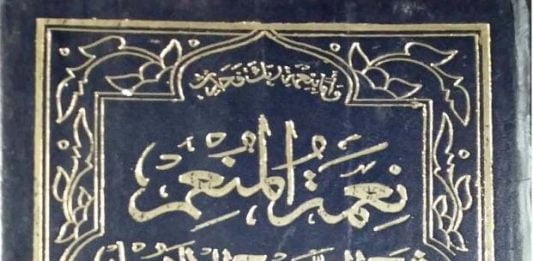 وأما بنعمة ربك فحدث
نعمة المنعم